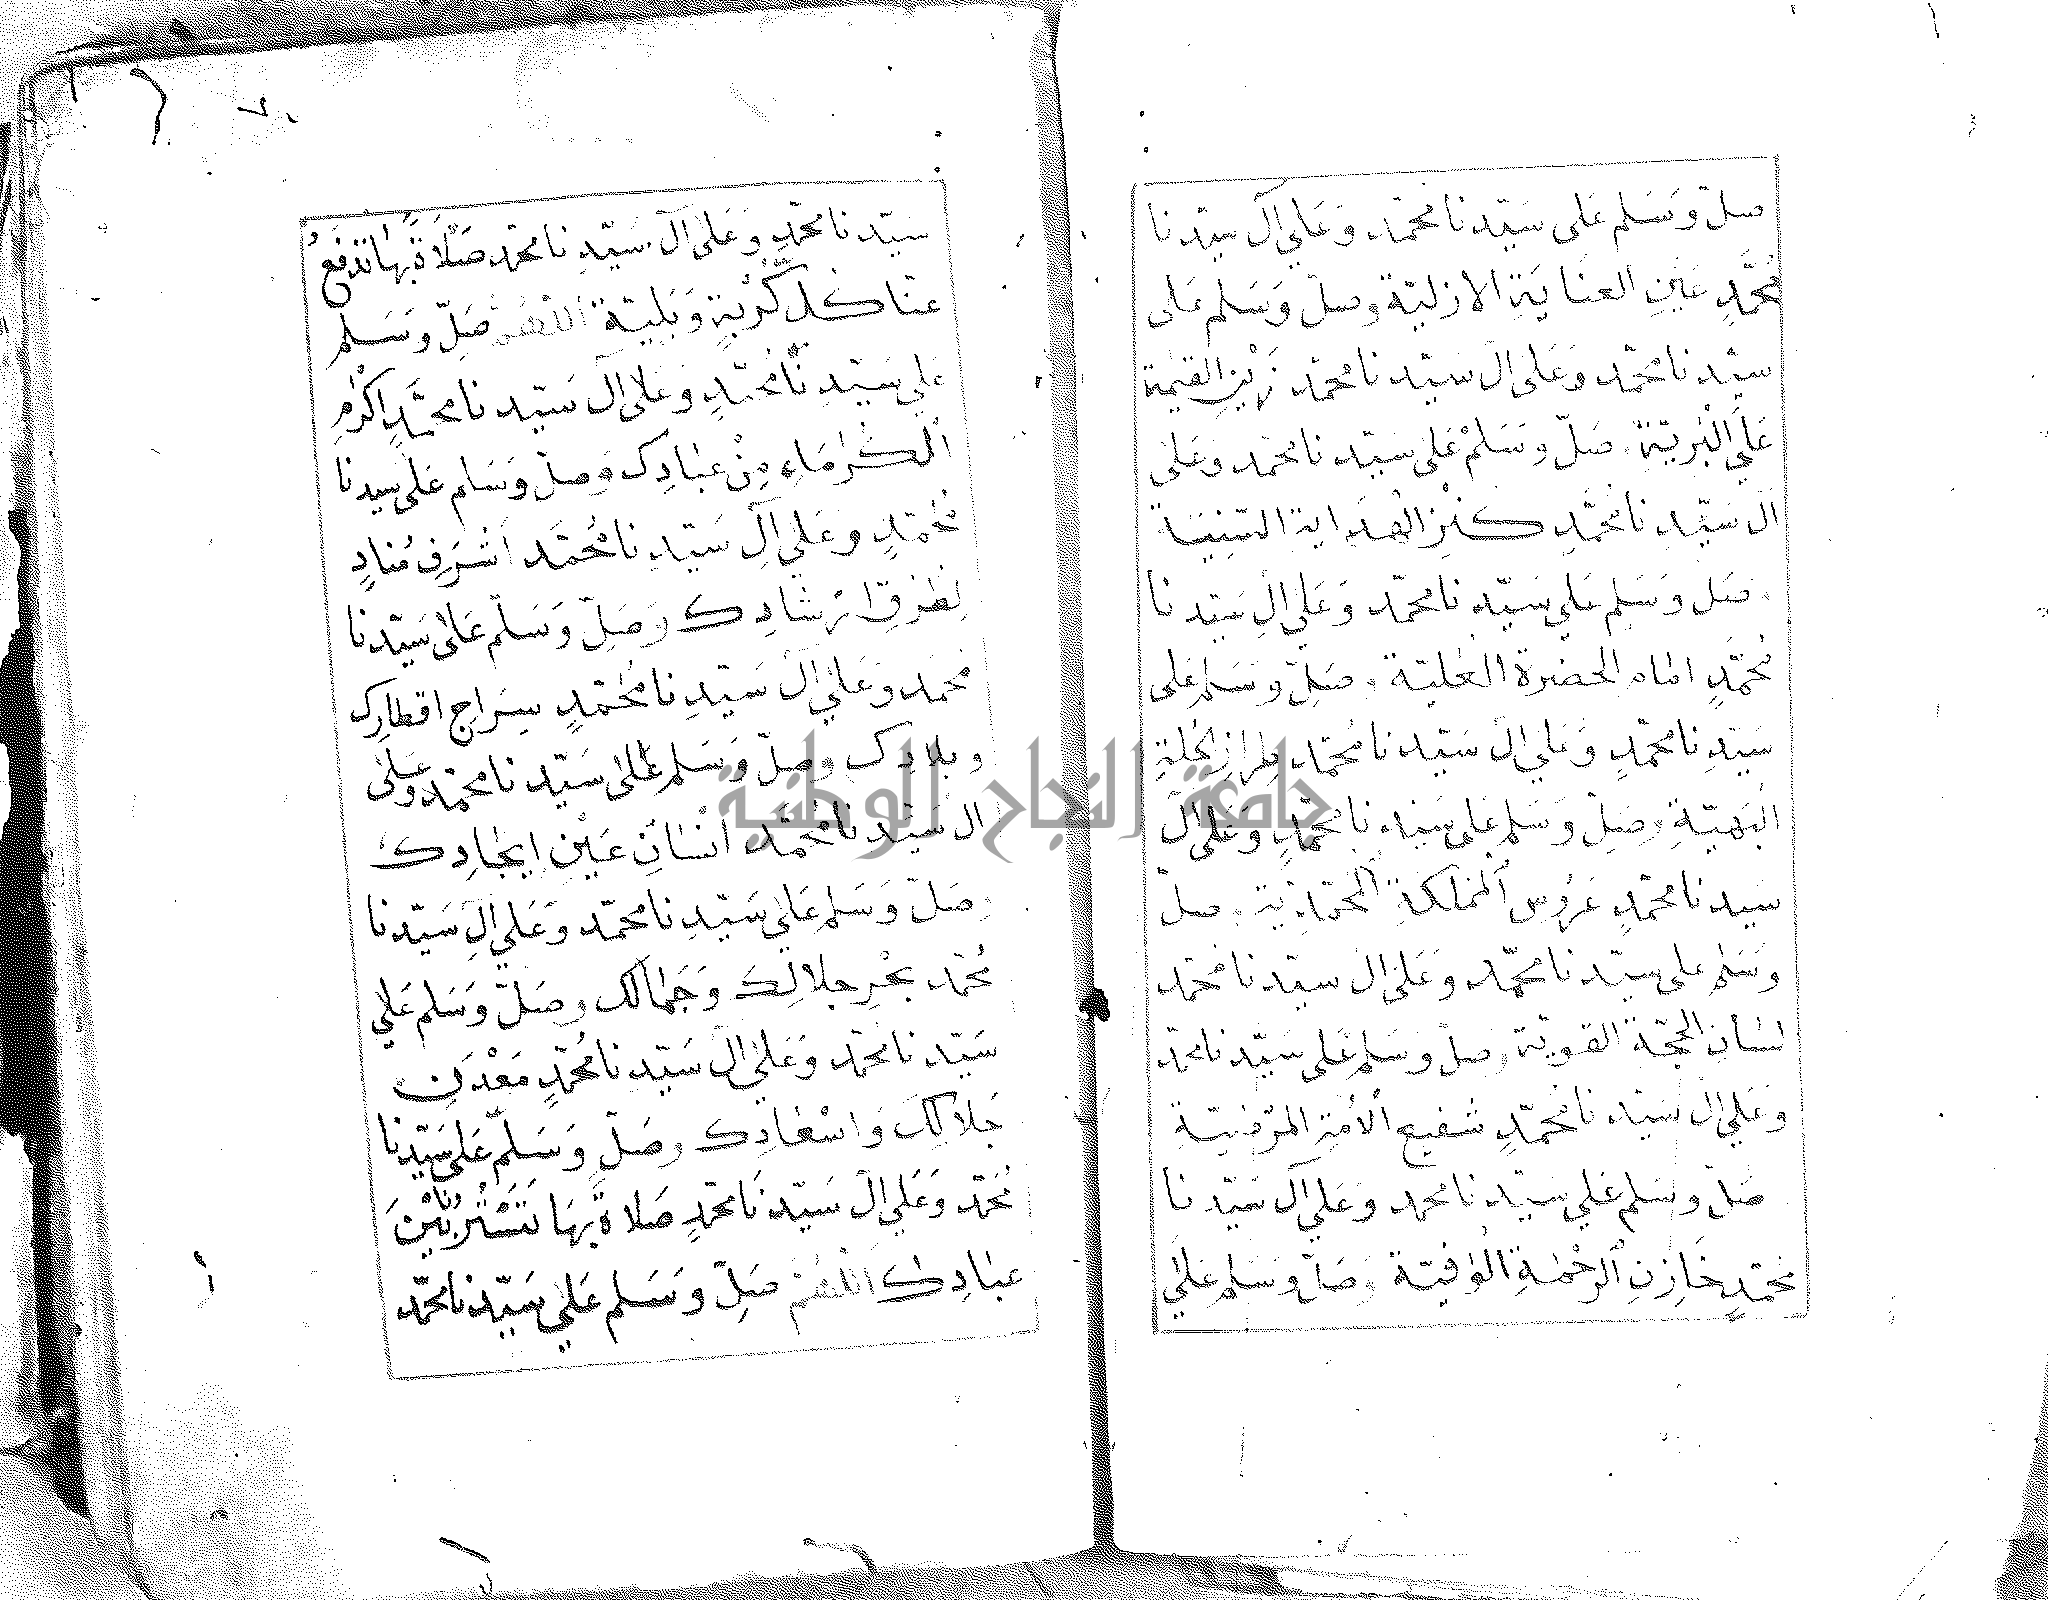 صلّ وَسَلم عَلى سَيّدنا محمّد وَعَلي آل سيّدنا
مُحَمَّدٍ عَينِ العنَايَةِ الازليّة وصلّ وَسَلم عَلى
سيّدنا محمّد وَعَلى آل سيّدنا محمّد زَينِ القيمة
عَلَي الْبَريّة وصَلّ وسَلمْ عَلى سيّدنا محمّد وعَلى
آل سَيّدنا مُحَمَّدٍ كنْزِ الهدَاية السّنِيَة
وصَل وسَلم عَلي سَيّدنا محمّد وَعَلي آلِ سَيّدنا
مُحَمّدٍ امَام الحَضرة العَليّة وصَلِّ وسَلم عَلى
سَيّدِنا محمّدٍ وَعَلي آل سَيّدنا مُحَمّد طِرازِ الحُلةِ
البَهيّةِ وصَلِّ وَسَلم عَلى سَيّدنا محمّدٍ وَعَلى آل
سيدنا محمّدٍ عَرُوسِ المَمْلكةِ المحمّدية وصلّ
وسَلم على سيّدنا محمّد وَعَلى آل سيّدنا محمّد
لسَانِ الحجّة القويّة وصلّ وسَلم عَلى سَيّدنا محمّد
وَعَلي آل سَيّدنا محمّدٍ شفيع الأمّةِ المرْضيّة
صَلّ وسَلم عَلي سَيّدنا محمد وَعَلي آل سَيّدنا
محَمّدٍ خَازِنِ الرحْمَةِ الوَافيّة وصَلّ وسَلم عَلي
سَيّدنا محمّدٍ وَعَلى آل سَيّدِنا محمّد صَلاةً بهَا تدفَعُ
عنّا كلّ كُرْبةٍ وَبَليّة اللهُمَّ صَلّ وسَلم
عَلي سَيّدِنَا مُحَمّدٍ وَعَلى آل سَيّدنا محمَّدٍ اكْرَمِ
الكُرَمَاءِ مِنْ عبَادِكَ وَصلّ وَسَلم عَلى سيدنا
مُحَمّدٍ وعَلي آلِ سَيّدِنا مُحمَّد اشْرَفِ مُنادٍ
لِطُرُقِ ارْشَادِكَ وَصَلِّ وَسَلّم عَلى سَيّدنا
محمد وَعَلي آلَ سَيّدِنا مُحَمّدٍ سِرَاجِ اقطارِك
وبلادِك وصَلّ وَسَلم عَلى سَيّدنا محمّد وعَلى
ال سَيّدنا محمّد انسَانِ عَيْنِ ايجَادِكَ
وصَلّ وَسَلم عَلي سَيّدِنا محمّد وَعَلي آلِ سَيّدنا
مُحَمّد بَحْرِ جلالِكَ وَجَمالكَ وصَلّ وَسَلم عَلي
سَيّدنا محمّد وَعَلي آلَ سَيّدِنا مُحمّدٍ مَعْدَنِ
جَلالِكَ وَاسْعَادِكَ وصَلِّ وَسَلّم عَلى سَيّدنا
مُحَمّد وَعَلي آل سَيّدنَا محمّدٍ صَلاةً بهَا تَسْتُرنَا بَيْنَ
عبَادِكَ اللّهُمّ صَلِّ وَسَلم عَلي سَيّدنا محمّد
جامعة النجاح الوطنية